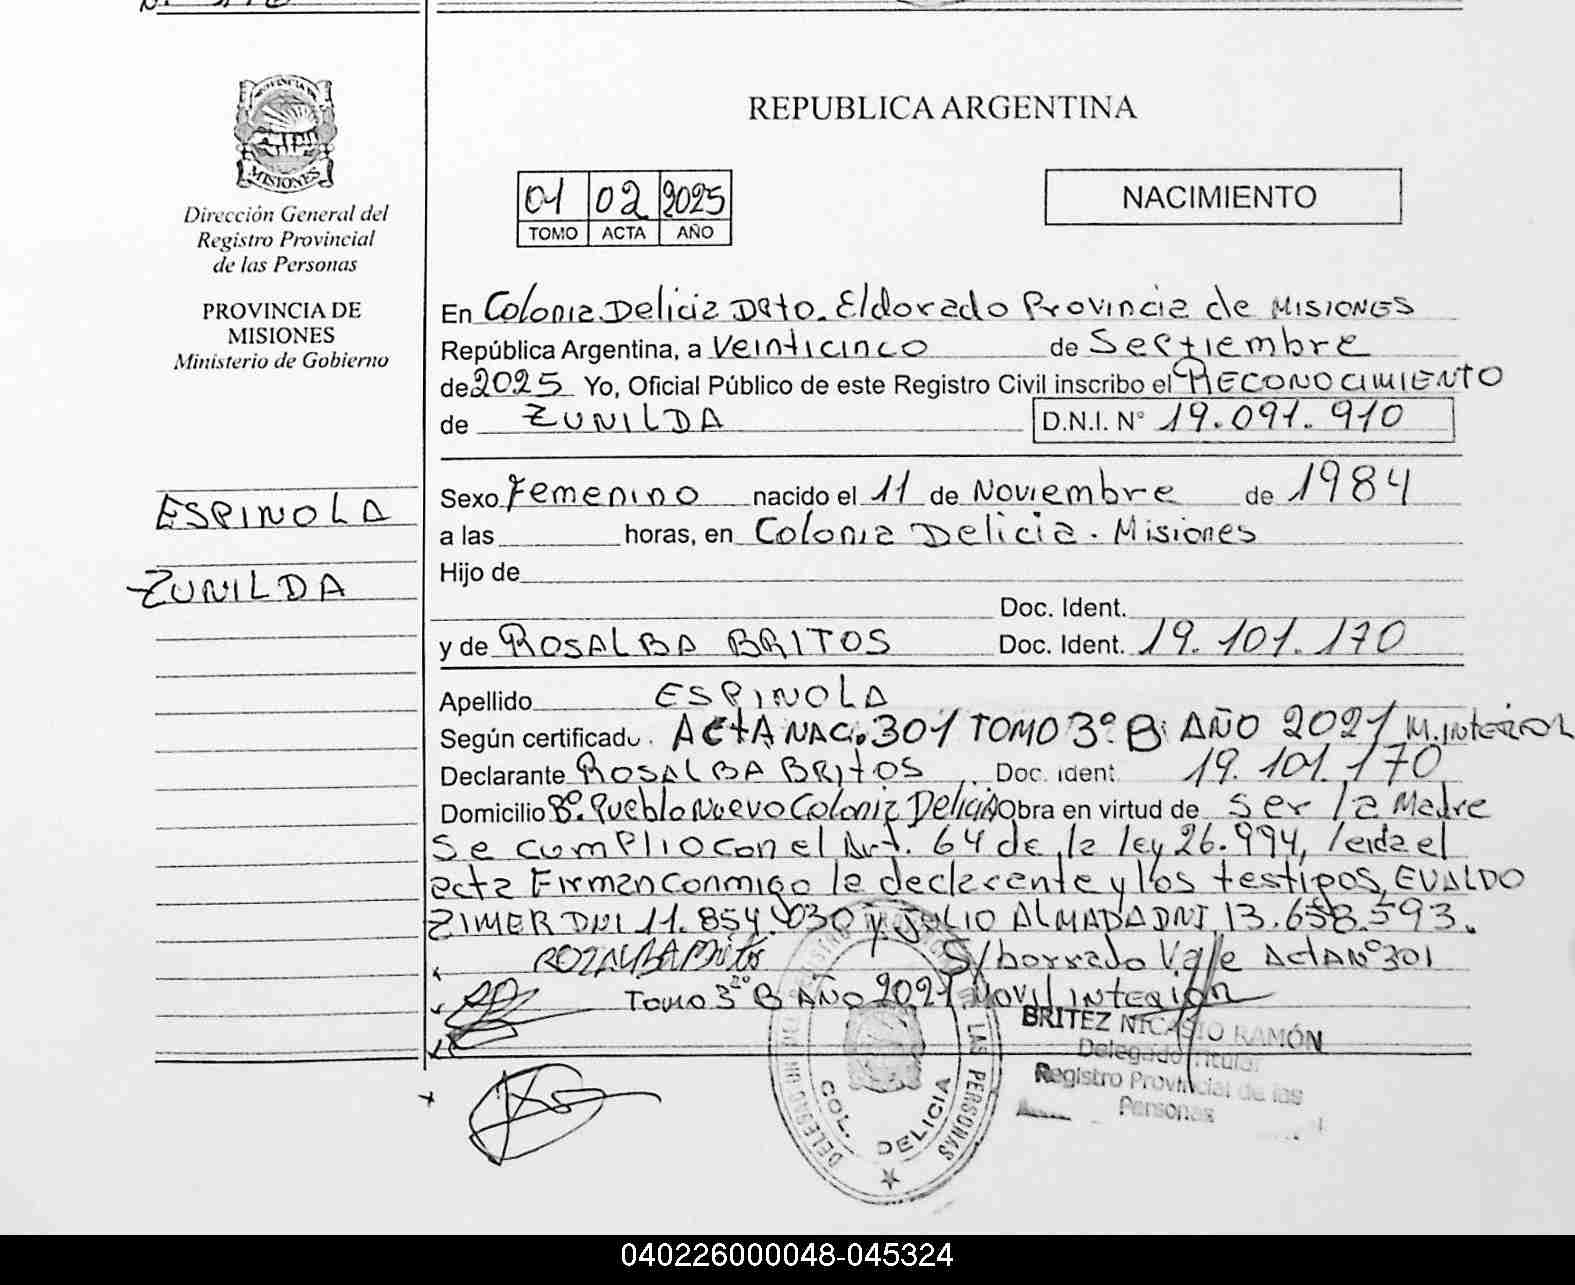 PROVINCIA DE
MISIONES
Dirección General del
Registro Provincial
de las Personas
PROVINCIA DE
MISIONES
Ministerio de Gobierno
ESPINOLA
ZUNILDA
REPUBLICA ARGENTINA
01 02 2025
TOMO ACTA AÑO
NACIMIENTO
En Colonia Delicia Dpto. Eldorado Provincia de MISIONES
República Argentina, a Veinticinco de Septiembre
de 2025 Yo, Oficial Público de este Registro Civil inscribo el RECONOCIMIENTO
de ZUNILDA D.N.I. N° 19.091.910
Sexo Femenino nacido el 11 de Noviembre de 1984
a las horas, en Colonia Delicia. Misiones
Hijo de
Doc. Ident.
y de ROSALBA BRITOS Doc. Ident. 19.101.170
Apellido ESPINOLA
Según certificado ACTA NAC. 301 TOMO 3° B AÑO 2021
Declarante ROSALBA BRITOS Doc. ident. 19.101.170
Domicilio B°. Pueblo Nuevo Colonia Delicia Obra en virtud de Ser la Madre
Se cumplio con el Art. 64 de la ley 26.994, leida el
acta Firman conmigo la declarante y los testigos, EVALDO
ZIMER DNI 11.854.030 y JULIO ALMADA DNI 13.658.593.
S/borrado Valle ActA N° 301
Tomo 3° B AÑO 2021 Movil
BRITEZ NICASIO RAMÓN
Delegado Titular
Registro Provincial de las
Personas
COL. DELICIA
LAS PERSONAS
040226000048-045324